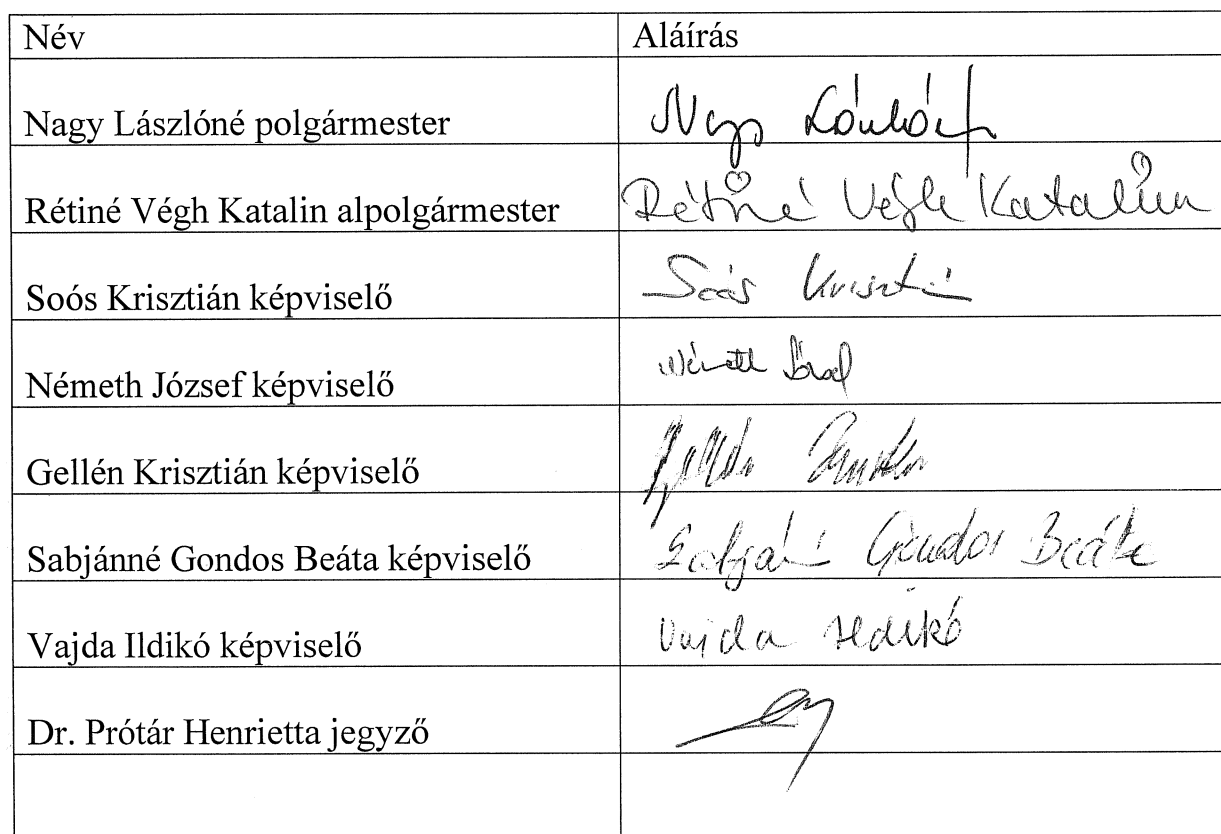 Név Aláírás
Nagy Lászlóné polgármester Nagy Lászlóné
Rétiné Végh Katalin alpolgármester Rétiné Végh Katalin
Soós Krisztián képviselő Soós Krisztián
Németh József képviselő Németh József
Gellén Krisztián képviselő
Sabjánné Gondos Beáta képviselő Sabjánné Gondos Beáta
Vajda Ildikó képviselő Vajda Ildikó
Dr. Prótár Henrietta jegyző